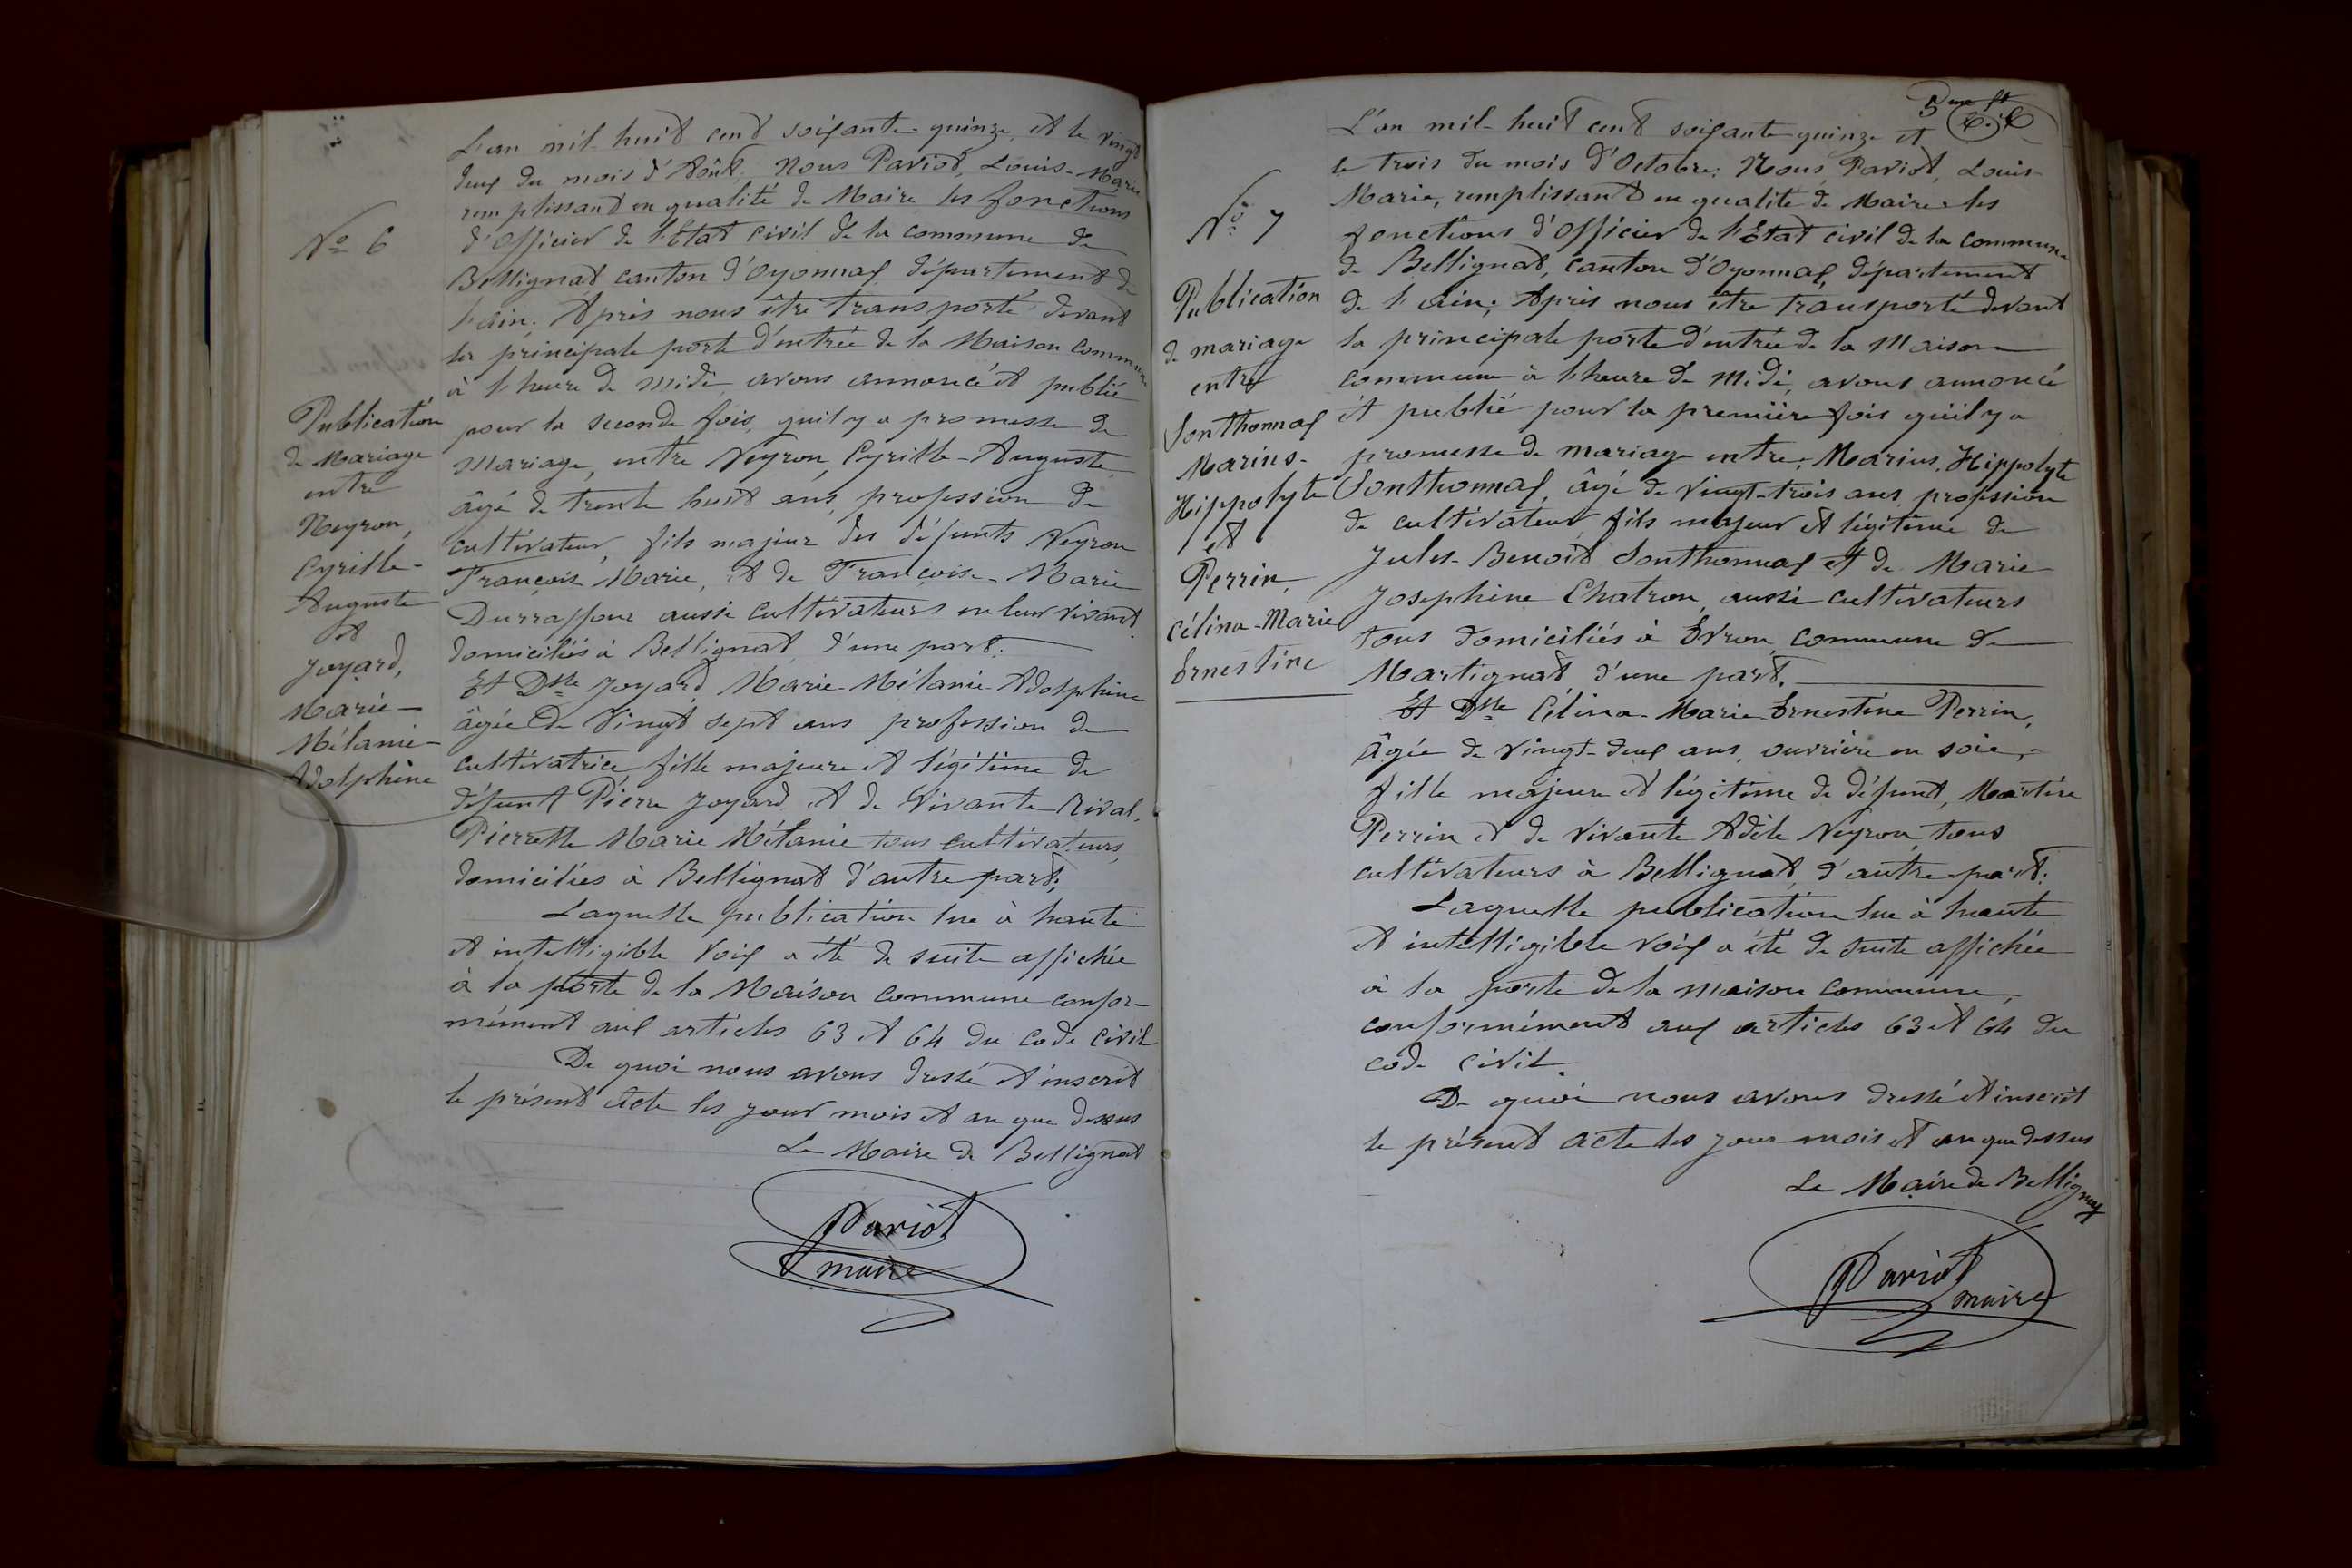 N° 6
Publication
de Mariage
entre
Neyron,
Cyrille-
Auguste
et
Joyard,
Marie-
Mélanie-
Adolphine
L'an mil huit cent soixante quinze, et le vingt
deux du mois d'Août. Nous Paviot, Louis-Marie
remplissant en qualité de Maire les fonctions
d'Officier de l'Etat civil de la commune de
Bellignat canton d'Oyonnax département de
l'ain. Après nous être transporté devant
la principale porte d'entrée de la Maison commune
à l'heure de midi avons annoncé et publié
pour la seconde fois, qu'il y a promesse de
Mariage, entre Neyron Cyrille-Auguste
âgé de trente huit ans, profession de
cultivateur, fils majeur des défunts Neyron
François-Marie, et de Françoise-Marie
Durraffour aussi cultivateurs en leur vivant
domiciliés à Bellignat d'une part.
Et Dlle Joyard Marie Mélanie Adolphine
âgée de vingt sept ans profession de
cultivatrice fille majeure et légitime de
défunt Pierre Joyard et de vivante Rival,
Pierrette Marie Mélanie tous cultivateurs,
domiciliés à Bellignat d'autre part;
Laquelle publication lue à haute
et intelligible voix a été de suite affichée
à la porte de la Maison commune confor-
mément aux articles 63 et 64 du code civil
De quoi nous avons dressé et inscrit
le présent acte les jour mois et an que dessus
Le Maire de Bellignat
Paviot
maire
5me ft
N° 7
Publication
de mariage
entre
Sonthonnax
Marius-
Hippolyte
et
Perrin,
Célina-Marie
Ernestine
L'an mil-huit cent soixante quinze et
le trois du mois d'Octobre; Nous Paviot, Louis-
Marie, remplissant en qualité de Maire les
fonctions d'Officier de l'Etat civil de la commune
de Bellignat, canton d'Oyonnax, département
de l'ain; Après nous être transporté devant
la principale porte d'entrée de la Maison
commune à l'heure de Midi, avons annoncé
et publié pour la première fois qu'il y a
promesse de mariage entre; Marius, Hippolyte
Sonthonnax, âgé de vingt-trois ans profession
de cultivateur fils majeur et légitime de
Jules-Benoît Sonthonnax et de Marie
Josephine Chatron, aussi cultivateurs
tous domiciliés à Evron, commune de
Martignat d'une part.
Et Dlle Célina-Marie Ernestine Perrin,
âgée de vingt-deux ans, ouvrière en soie,
fille majeure et légitime de défunt, Martin
Perrin et de vivante Adèle Neyron tous
cultivateurs à Bellignat, d'autre part;
Laquelle publication lue à haute
et intelligible voix a été de suite affichée
à la porte de la maison commune,
conformément aux articles 63 et 64 du
code civil.
De quoi nous avons dressé et inscrit
le présent acte les jour mois et an que dessus
Le Maire de Bellignat
Paviot
maire